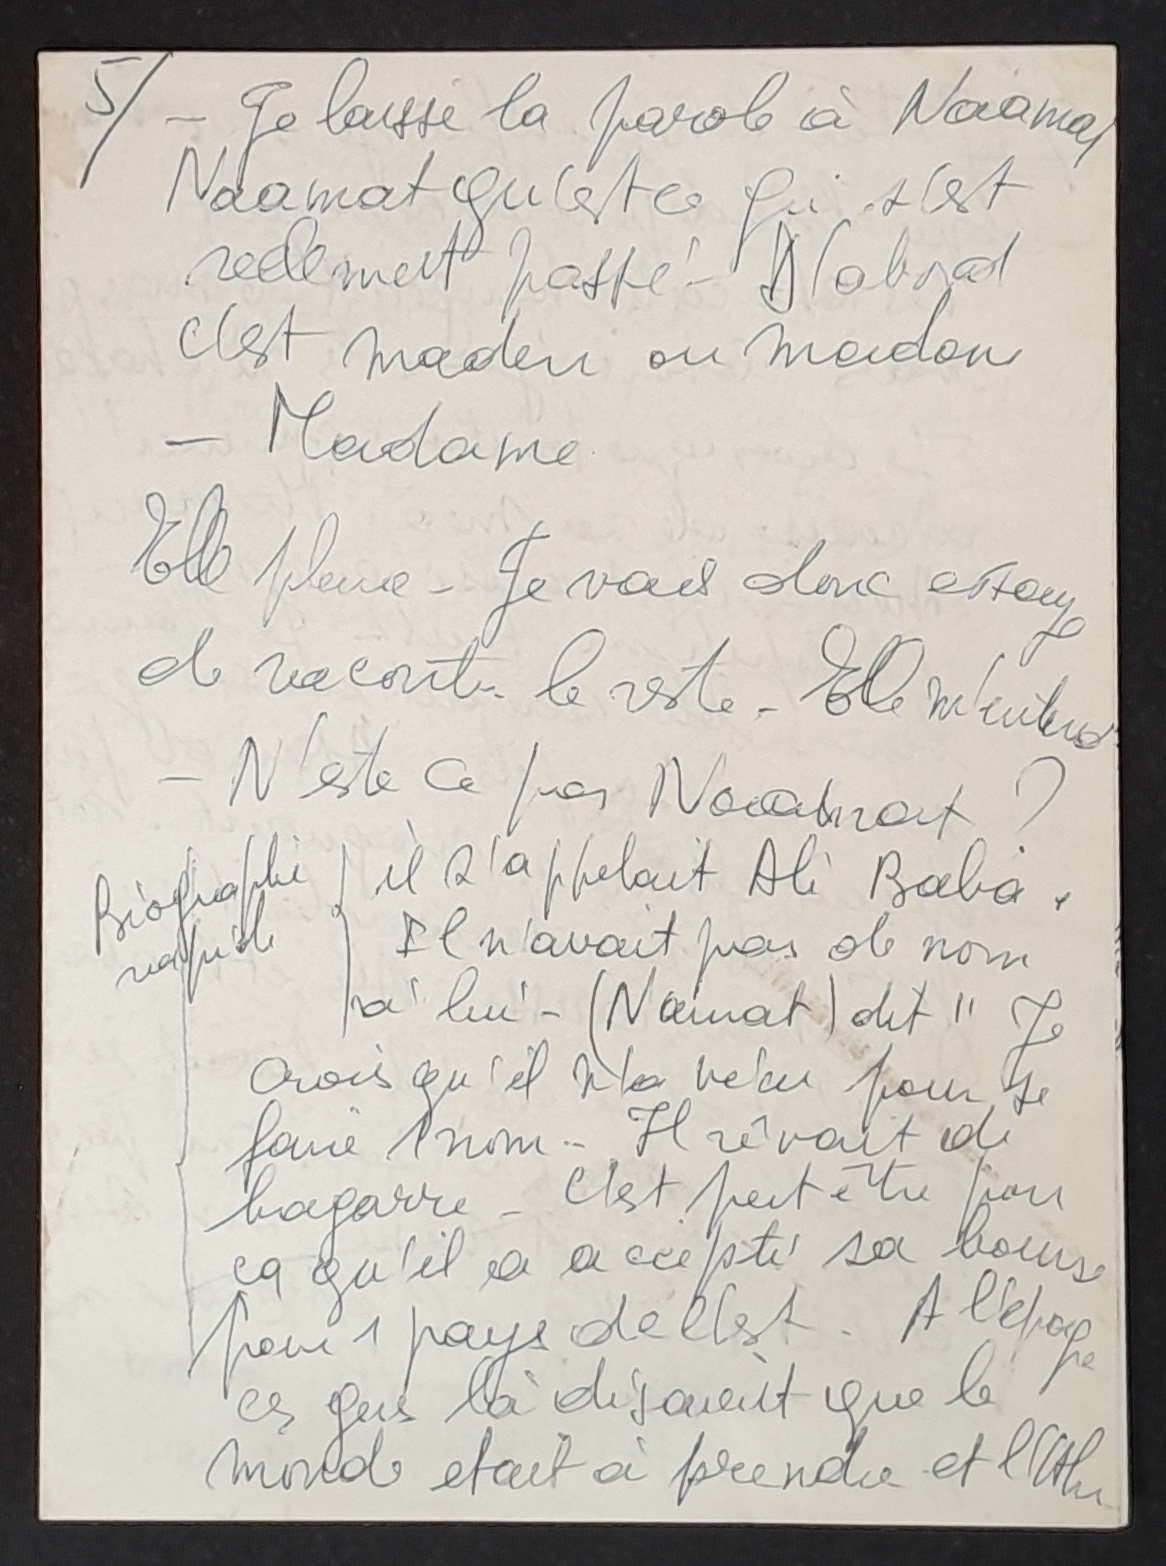 5/ - Je laisse la parole à Naamat
Naamat qu'est ce qui s'est
réellement passé - D'abord
c'est maden ou madom
- Madame
Elle pleure - Je vais donc essaye
de raconter le reste - Elle m'entend
- N'este ce pas Naamat ?
Biographie
rapide
il s'appelait Ali Baba.
Il n'avait pas de nom
à lui - (Namat) dit " Je
crois qu'il n'a vécu pour se
faire 1 nom - Il rêvait de
bagarre - c'est peut être pour
ça qu'il a accepté sa bourse
pour 1 pays de l'est. A l'époque
ces gens là disaient que le
monde etait à prendre et l'